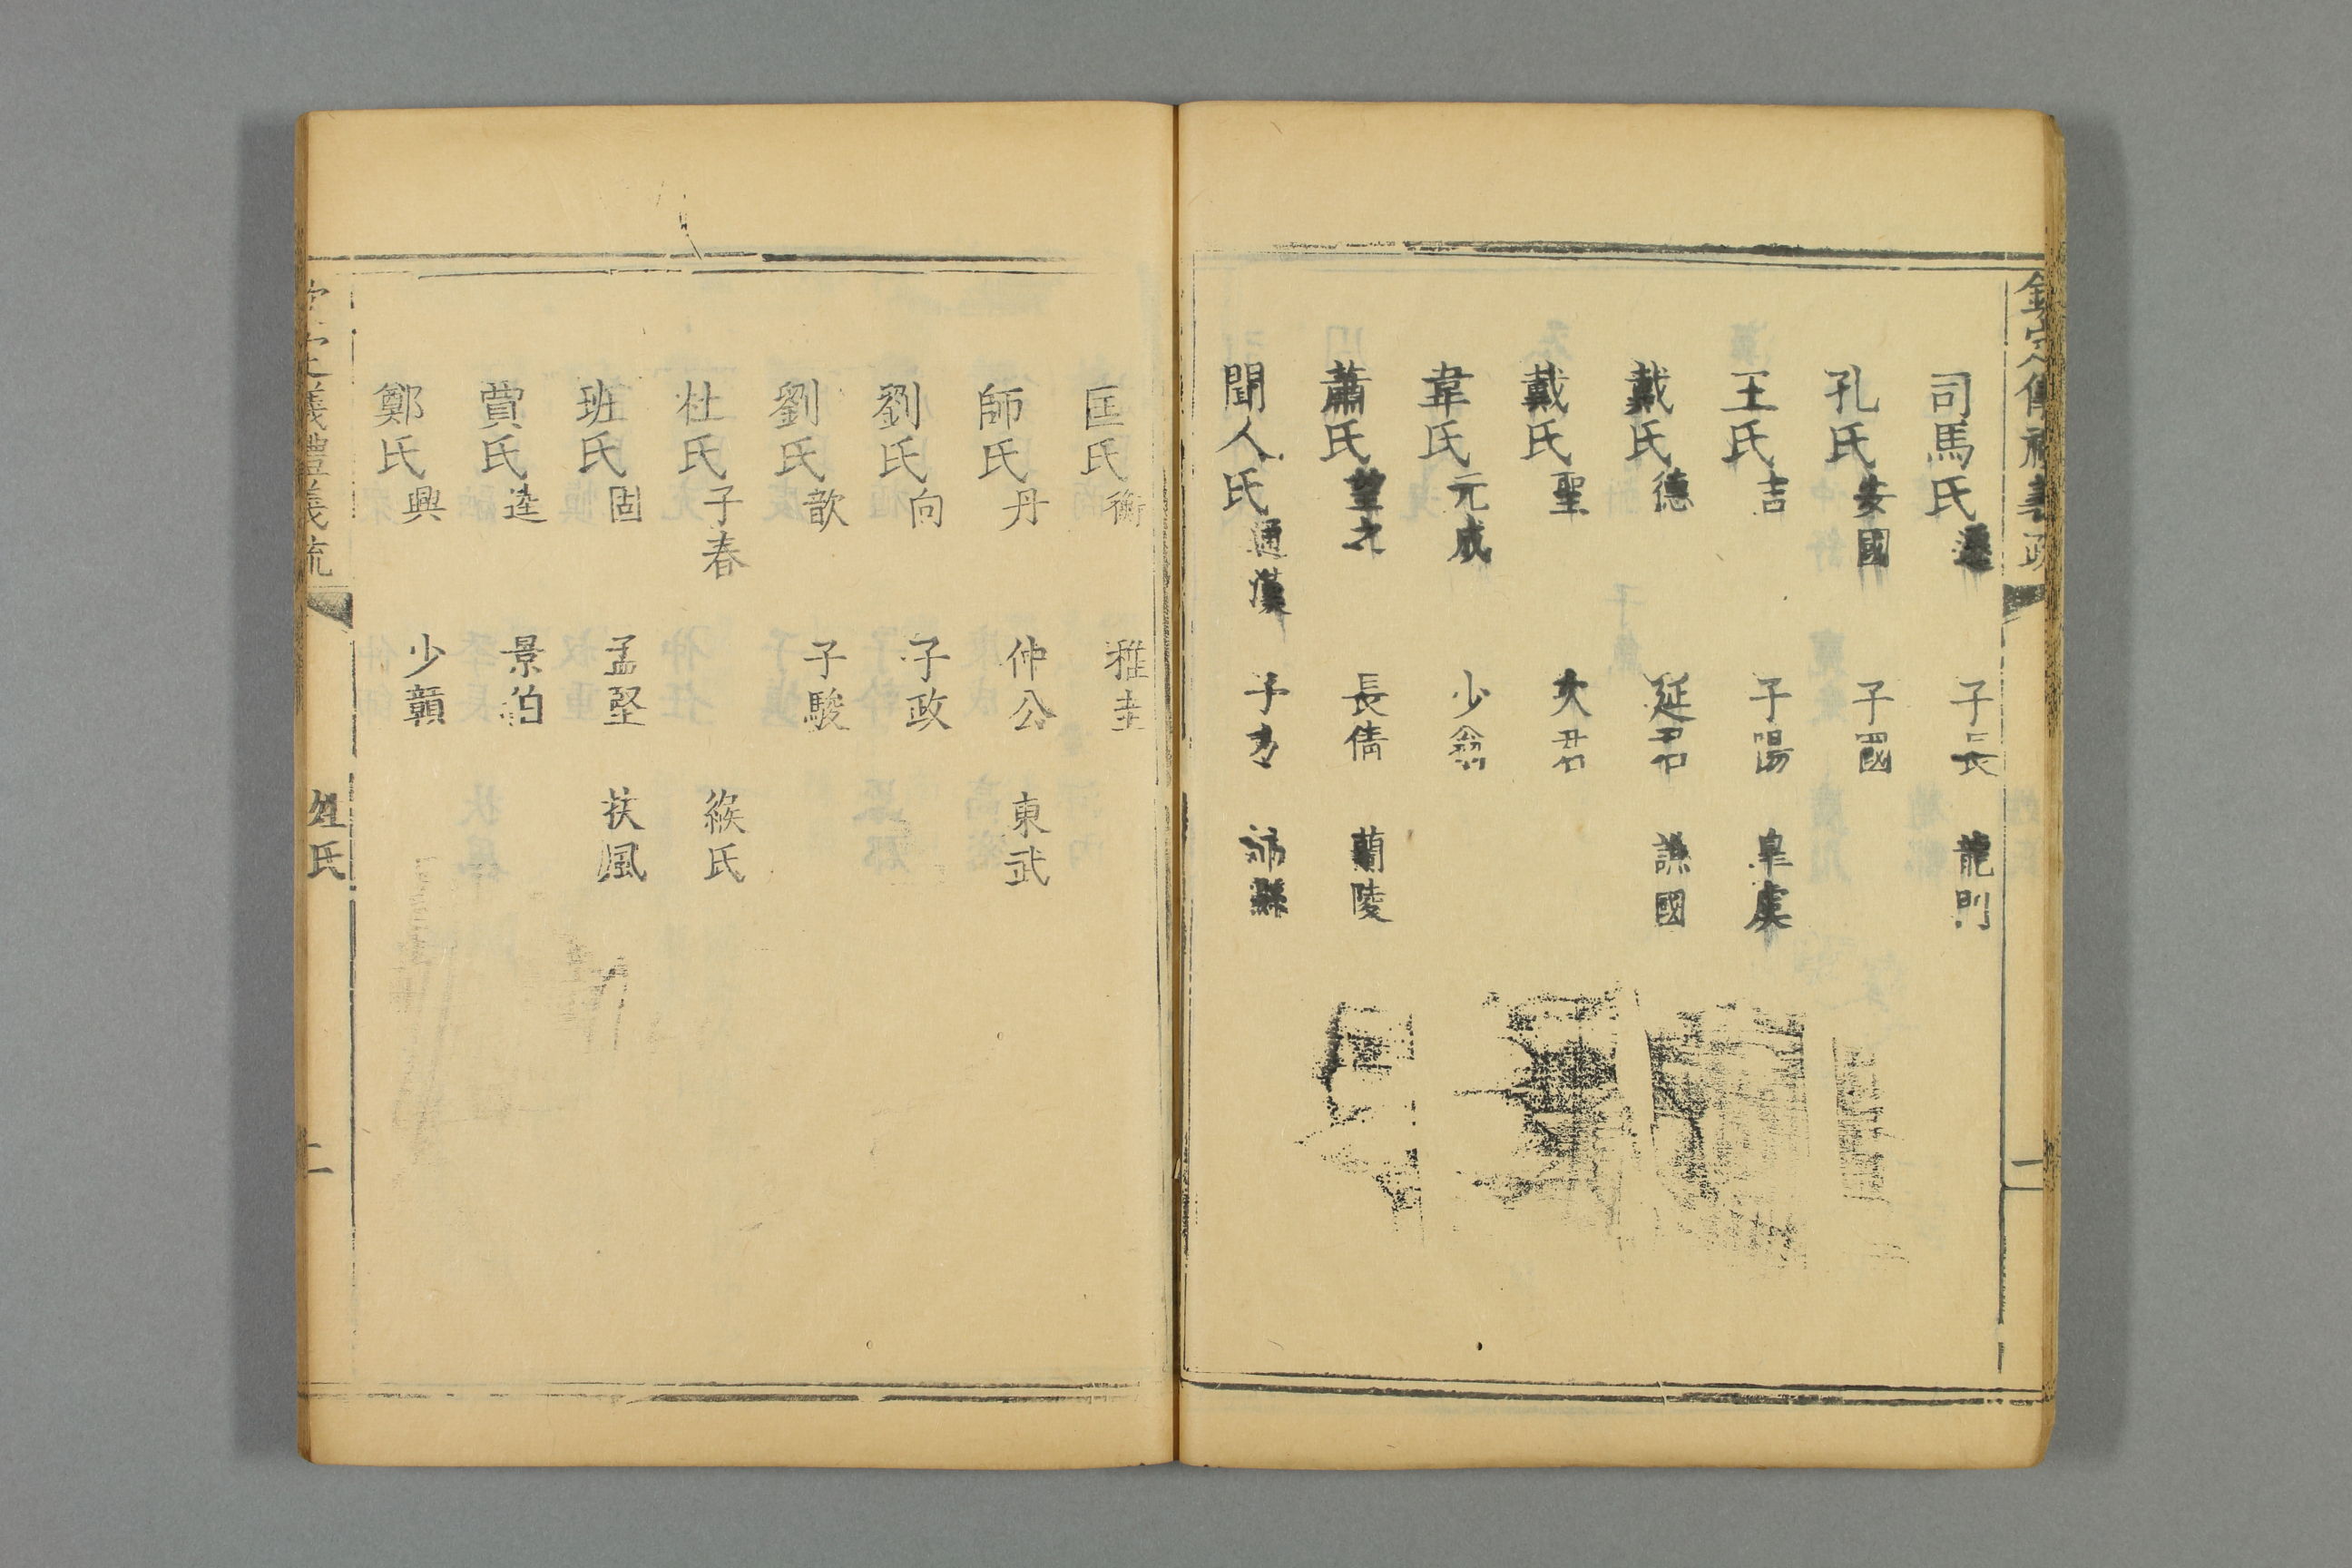 司馬氏遷 子長 龍門
孔氏安國 子國
王氏吉 子陽 皐虞
戴氏德 延君 譙國
戴氏聖 次君
韋氏元成 少翁
蕭氏望之 長倩 蘭陵
聞人氏通漢 子方 沛縣
匡氏衡 稚圭
師氏丹 仲公 東武
劉氏向 子政
劉氏歆 子駿
杜氏子春 緱氏
班氏固 孟堅 扶風
賈氏逵 景伯
鄭氏興 少贛
義禮義疏 姓氏 二